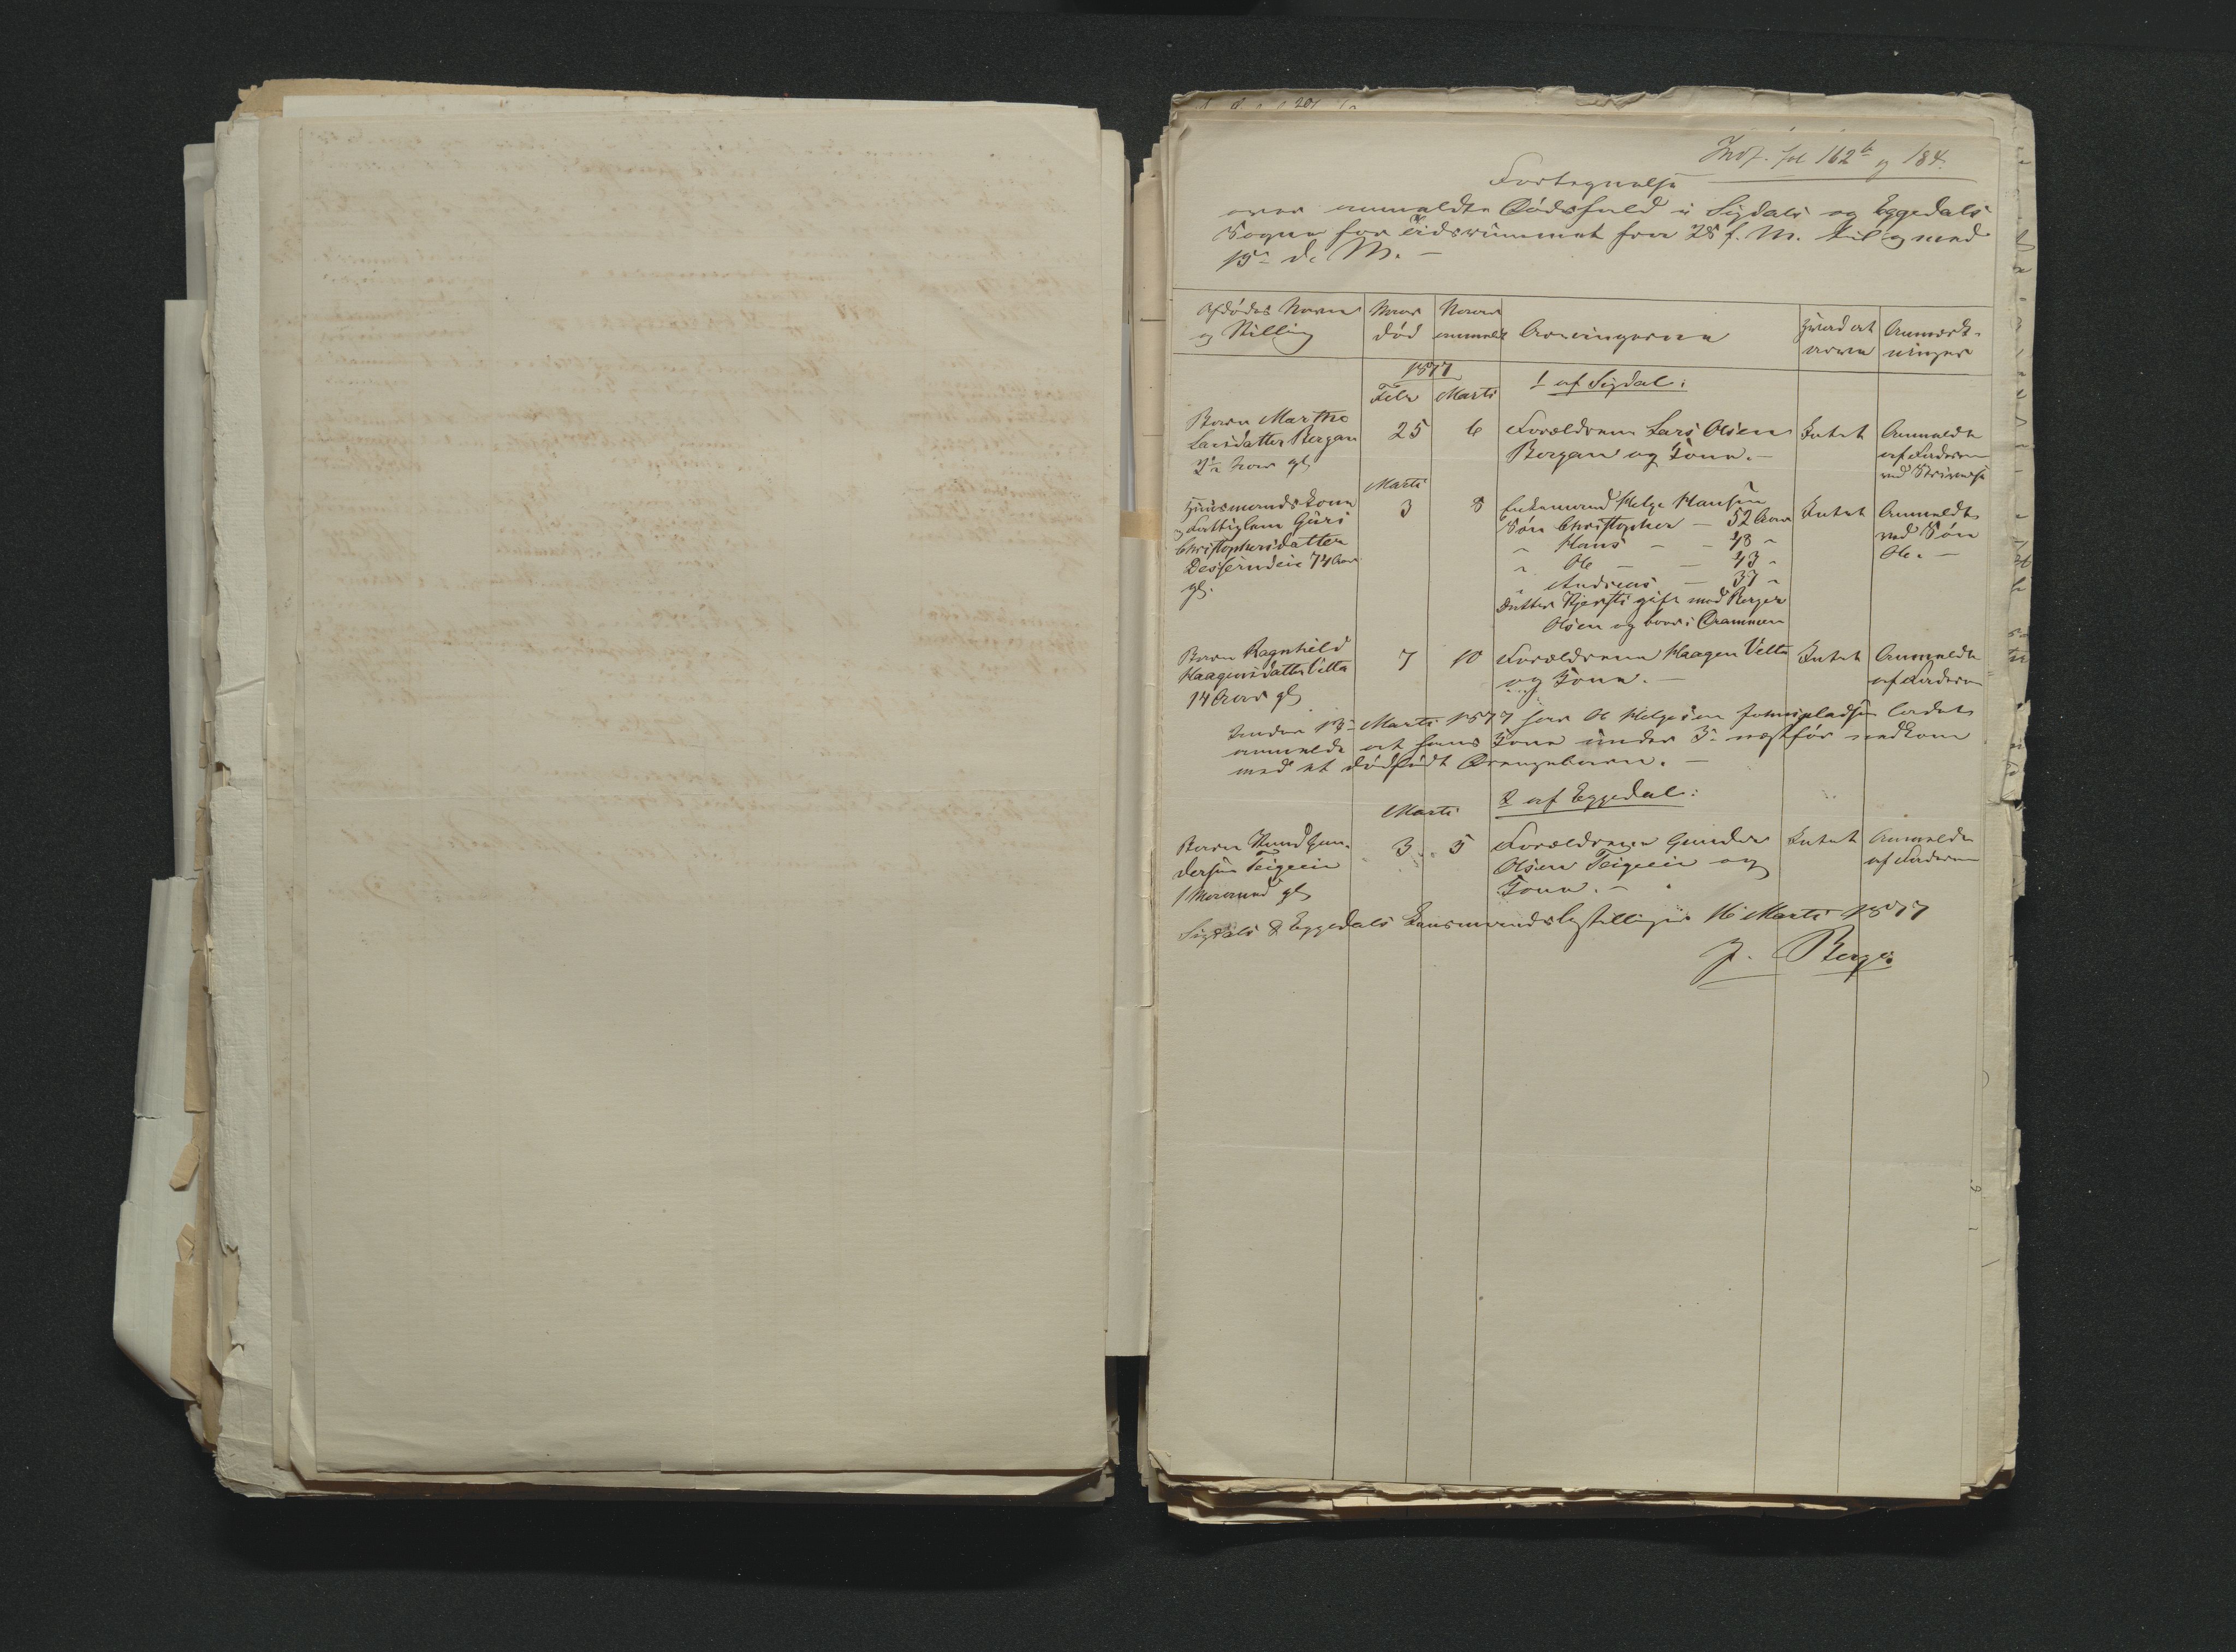 Indf. fol 162b og 184.
Fortegnelse
over anmeldte Dødsfald i Sigdals og Eggedals
Sogne for Tidsrummet fra 28 f. M. til og med
15 d. M. –
Afdødes Navn Naar Naar Arvingerne Hvad at Anmærk-
og Stilling død anmeldt arve ninger
1877
Febr Marts 1 af Sigdal:
Barn Marthe 25 6 Forældrene Lars Olsen Intet Anmeldt
Larsdatter Bergan Bergan og Kone. – af Faderen
2½ Aar gl ved Skrivelse
Marts
Huusmandskone 3 8 Enkemand Helge Hansen Intet Anmeldt
og Fattiglem Guri Søn Christopher – 52 Aar ved Søn
Christophersdatter " Hans – – 48 " Ole. –
" Ole – – 43 "
74 Aar
gl. " Andreas – 37 "
Datter Kjersti gift med Berger
Olsen og boer i Drammen
Barn Ragnhild 7 10 Forældrene Haagen Vetta Intet Anmeldt
Haagensdatter Vetta og Kone. – af Faderen
14 Aar gl
Under 13 Marts 1877 har Ole Helgesen ladet
anmelde at hans Kone under 3 næstfør nedkom
med et dødfødt Drengebarn. –
Marts 2 af Eggedal:
Barn Knud Gun- 3 5 Forældrene Gunder Intet Anmeldt
dersen Teigeeie Olsen Teigeeie og af Faderen
1 Maaned gl Kone. –
Sigdals & Eggedals Lensmandsbestilling 16 Marts 1877
J. Berge.